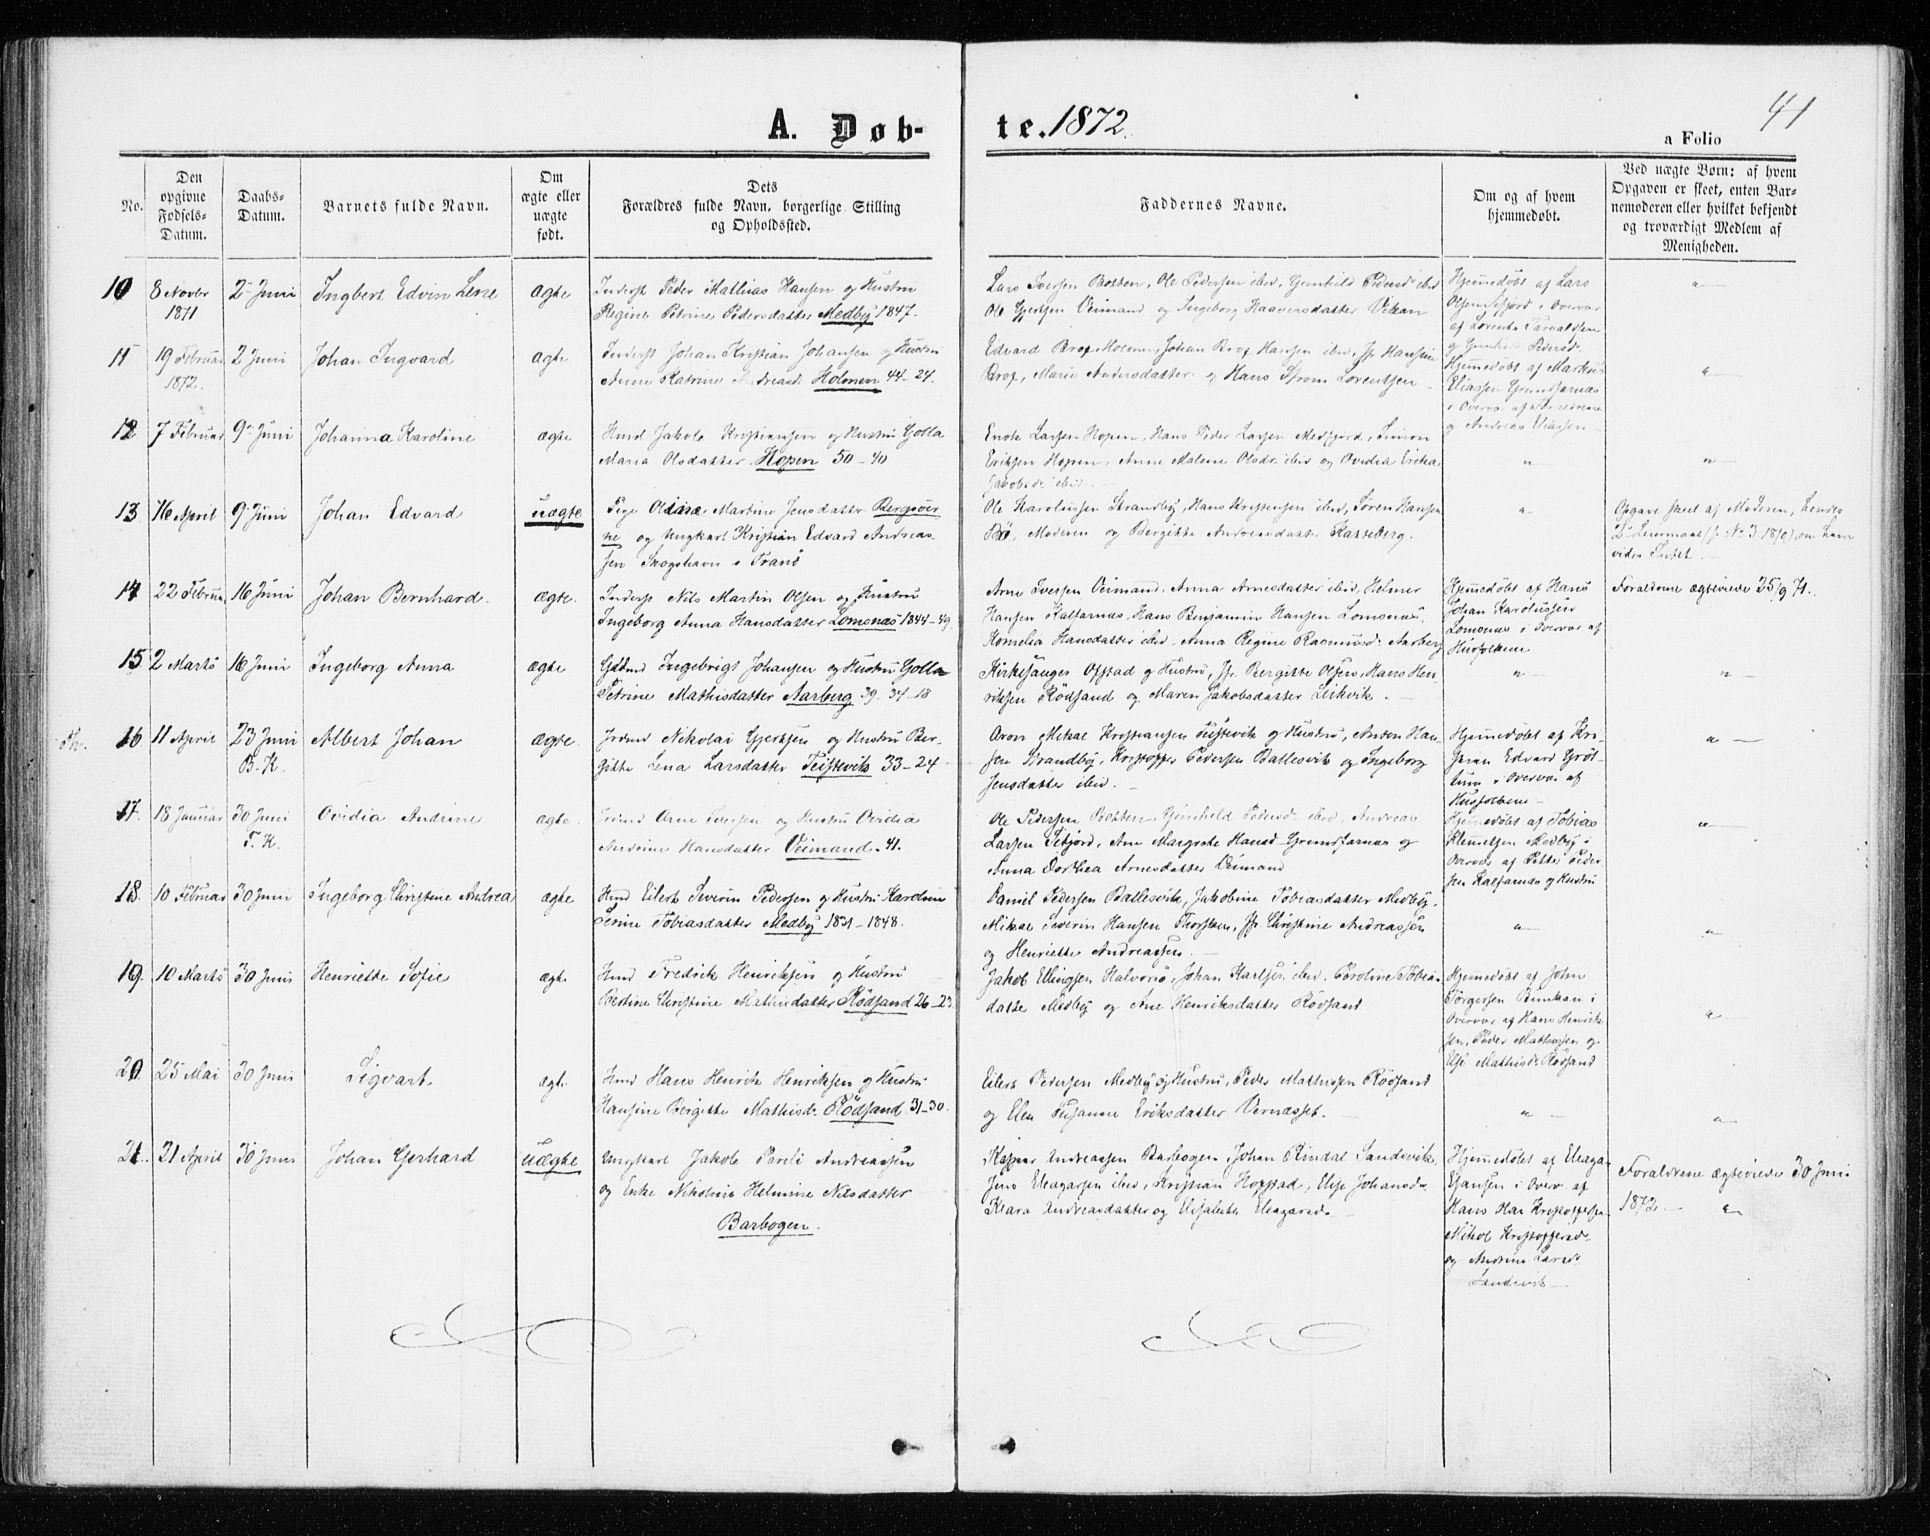 A. Døb-te. 1872.
41
a Folio
No.
Den opgivne Fødsels-Datum.
Daabs-Datum.
Barnets fulde Navn.
Om ægte eller uægte født.
Dets Forældres fulde Navn, borgerlige Stilling og Opholdssted.
Faddernes Navne.
Om og af hvem hjemmedøbt.
Ved uægte Børn: af hvem Opgaven er skeet, enten Barnemoderen eller hvilket bekjendt og troværdigt Medlem af Menigheden.
10 8 Novbr 1871 2 Juni Ingbert Edvin Lene ægte
Inderst Peder Mathias Hansen og Hustru
Regine Petrine Pedersdatter Medby 1847.
Lars Iversen Botten, Ole Pedersen ibid, Gunhild Pedersd ibid
Ole Gjertsen Veimand og Ingeborg Haavensdatter Vikan
Hjemmedøbt af Lars
Olsen Sifjord i Overvær
af Lorents Torvaldsen
og Gunhild Pedersd.
11 19 Februar 1872. 2 Juni Johan Ingvard ægte
Inderst Johan Kristian Johansen og Hustru
Anne Katrine Andreasd Holmen 44-24.
Edvard Brox Holmen, Johan Brox Hansen ibid, Jfr Hansine
Brox, Marie Andersdatter og Hans Strøm Lorentsen
Hjemmedøbt af Markus
Eliassen Grundfarnæs
i Overvær af Forældrene
og Andreas Eliassen
12 7 Februar 9 Juni Johanna Karoline ægte
Husmd Jakob Kristiansen og Hustru Golla
Maria Olsdatter Hopen 50-40
Enok Larsen Hopen, Hans Peder Larsen Medfjord, Simon
Eriksen Hopen, Anne Malene Olsdr ibid og Ovidia Erika
Jakobsdr ibid.
13 16 April 9 Juni Johan Edvard uægte
Pige Oldine Martine Jensdatter Bergsøer
ne og Ungkarl Kristian Edvard Andreas
sen Skogshavn i Tranø
Ole Karolussen Strandby, Hans Kristensen ibid, Søren Hansen
Bø, Moderen og Bergitte Andreasdatter Skatteberg.
Opgave skeet af Moderen, hendes
2 Leiermaal
14 22 Februar 16 Juni Johan Bernhard. ægte.
Inderst Nils Martin Olsen og Hustru
Ingeborg Anna Hansdatter Lomsnæs 1844-49.
Arne Iversen Veimand, Anna Arnesdatter ibid, Helmer
Hansen Kalfarnæs, Hans Benjamin Hansen Lomsnæs,
Kornelia Hansdatter ibid, Anna Regine Rasmusd. Aarberg
Hjemmedøbt af Hans
Johan Karolussen
Lomsnæs i Overvær af
Husfolkene
Forældrene ægteviede 25/9 71.
15. 2 Marts 16 Juni Ingeborg Anna ægte
Gdmd Ingebrigt Johansen og Hustru Golla
Petrine Mathisdatter Aarberg 39. 34-18
Kirkesanger Opstad og Hustru, Jfr Bergitte Olsen, Hans Hen
riksen Rødsand og Maren Jakobsdatter Leikvik.
16 11 April 23 Juni B. K. Albert Johan ægte.
Nikolai Gjertsen og Hustru Ber-
gitte Lena Larsdatter Teistevik 33-24
Aron Mikal Kristiansen Teistevik og Hustru, Anton Han-
sen Strandby, Kristoffer Pedersen Ballesvik og Ingeborg
Jensdatter ibid.
Hjemmedøbt af Kri-
stian Edvard Grøt-
tum i Overvær af
Husfolkene
17. 18 Januar 30 Juni T. K. Ovidia Andrine ægte.
Arne Iversen og Hustru Ovidia
Andrine Hansdatter Veimand. 41.
Ole Pedersen Botten, Gunhild Pedersd. ibid, Andreas
Larsen Sifjord, Ane Margrete Hansd Grundfarnæs og
Anna Dorthea Arnesdatter Veimand
Hjemmedøbt af Tobias
Klemetsen Medby i
Overvær af Petter Peder
sen Kalfarnæs og Hustru
18. 10 Februar 30 Juni Ingeborg Christine Andrea ægte
Husmd Eilert Severin Pedersen og Hustru Karoline
Serine Tobiasdatter Medby 1851-1848.
Daniel Pedersen Ballesvik, Jakobine Tobiasdatter Medby.
Mikal Severin Hansen Torsken, Jfr Christine Andreassen
og Henriette Andreassen.
19. 10 Marts 30 Juni Henriette Sofie ægte
Husmd Fredrik Henriksen og Hustru
Bertine Christine Mathisdatter Rødsand 26-23
Jakob Ellingsen Halvorsø, Johan Karlsen ibid. Caroline Tobias
datter Medby og Ane Henriksdatter Rødsand
Hjemmedøbt af John
Torgersen Bunkan i
Overvær af Hans Henrik
sen, Peder Mathissen og
Else Mathisdr Rødsand
20. 25 Mai 30 Juni Sigvart. ægte.
Husmd Hans Henrik Henriksen og Hustru
Hansine Bergitte Mathisdr Rødsand 31-30.
Eilert Pedersen Medby og Hustru, Peder Mathissen Rødsand
og Elen Susanne Eriksdatter Vernæsset.
21. 21 April 30 Juni Johan Gerhard uægte
Ungkarl Jakob Pareli Andreassen
og Enke Nikoline Helmine Nilsdatter
Barbogen.
Kaspar Andreassen Barbogen, Johan Rindal Sandsvik,
Jens Eleazarsen ibid, Kristian Hopstad, Else Johansd.
Klara Andreasdatter og Elisabeth Eleazarsd.
Hjemmedøbt af Eleazar
Hansen i Overv. af
Hans Har Kristoffersen
Mikal Kristoffersd
og Andrine Larsd
Sandsvik
Forældrene ægteviede 30 Juni
1872.